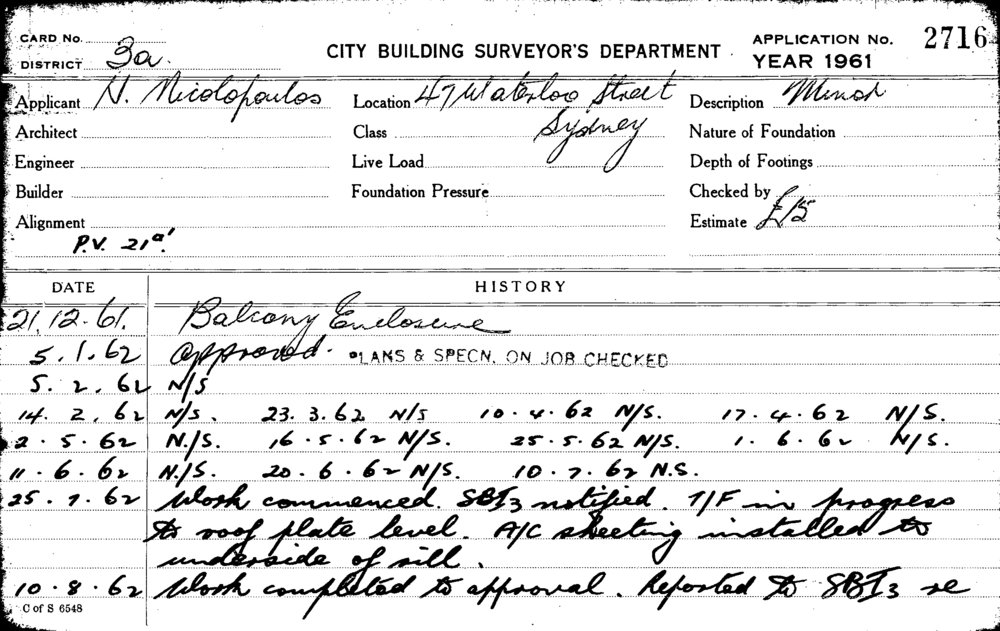 CARD No.
DISTRICT 3a
CITY BUILDING SURVEYOR'S DEPARTMENT
APPLICATION No. 2716
YEAR 1961
Applicant N. Nicolopoulos Location 47 Waterloo Street Description Minor
Architect Class Sydney Nature of Foundation
Engineer Live Load Depth of Footings
Builder Foundation Pressure Checked by
Alignment Estimate £15
P.V. 21a!
DATE HISTORY
21.12.61. Balcony Enclosure
5.1.62 Approved. PLANS & SPECN. ON JOB CHECKED
5.2.62 N/S
14.2.62 N/S. 23.3.62 N/S 10.4.62 N/S. 17.4.62 N/S.
2.5.62 N./S. 16.5.62 N/S. 25.5.62 N/S. 1.6.62 N/S.
11.6.62 N./S. 20.6.62 N/S. 10.7.62 N.S.
25.7.62 Work commenced. SBI3 notified. T/F in progress
to roof plate level. A/C sheeting installed to
underside of sill.
10.8.62 Work completed to approval. Reported to SBI3 re
C of S 6548